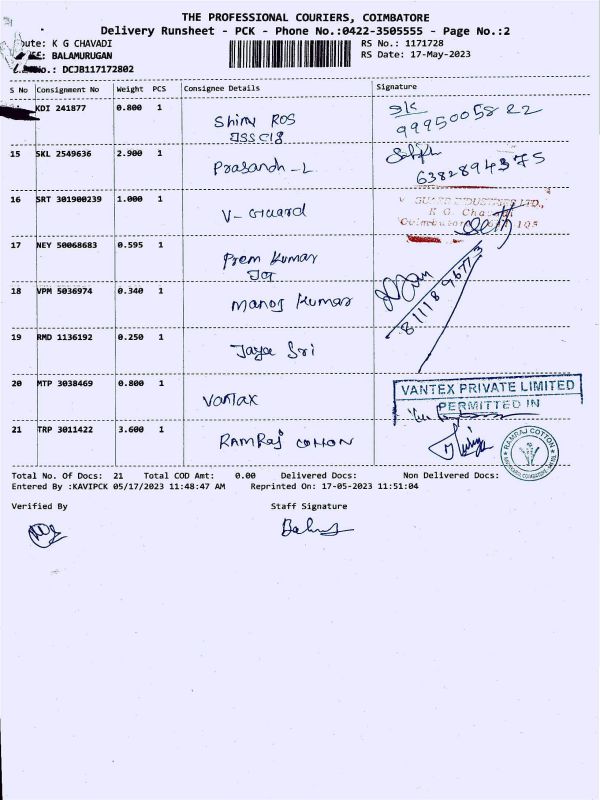 THE PROFESSIONAL COURIERS, COIMBATORE
Delivery Runsheet - PCK - Phone No.:0422-3505555 - Page No.:2
oute: K G CHAVADI
RS No.: 1171728
BALAMURUGAN
RS Date: 17-May-2023
No.: DCJB117172802
S No Consignment No Weight PCS Consignee Details Signature
KDI 241877 0.800 1 Shiny ROS
15 SKL 2549636 2.900 1 Prasandh - L
6382894375
16 SRT 301900239 1.000 1 V- Guard
V GUARD INDUSTRIES LTD.,
K G Chavadi
Coimbatore 105
17 NEY 50068683 0.595 1 Prem Kumar
18 VPM 5036974 0.340 1 Manoj Kumar
19 RMD 1136192 0.250 1 Jaya Sri
20 MTP 3038469 0.800 1 Vantax
VANTEX PRIVATE LIMITED
PERMITTED IN
21 TRP 3011422 3.600 1 RAMRaj COTTON
RAMRAJ COTTON
Total No. Of Docs: 21 Total COD Amt: 0.00 Delivered Docs: Non Delivered Docs:
Entered By :KAVIPCK 05/17/2023 11:48:47 AM Reprinted On: 17-05-2023 11:51:04
Verified By Staff Signature